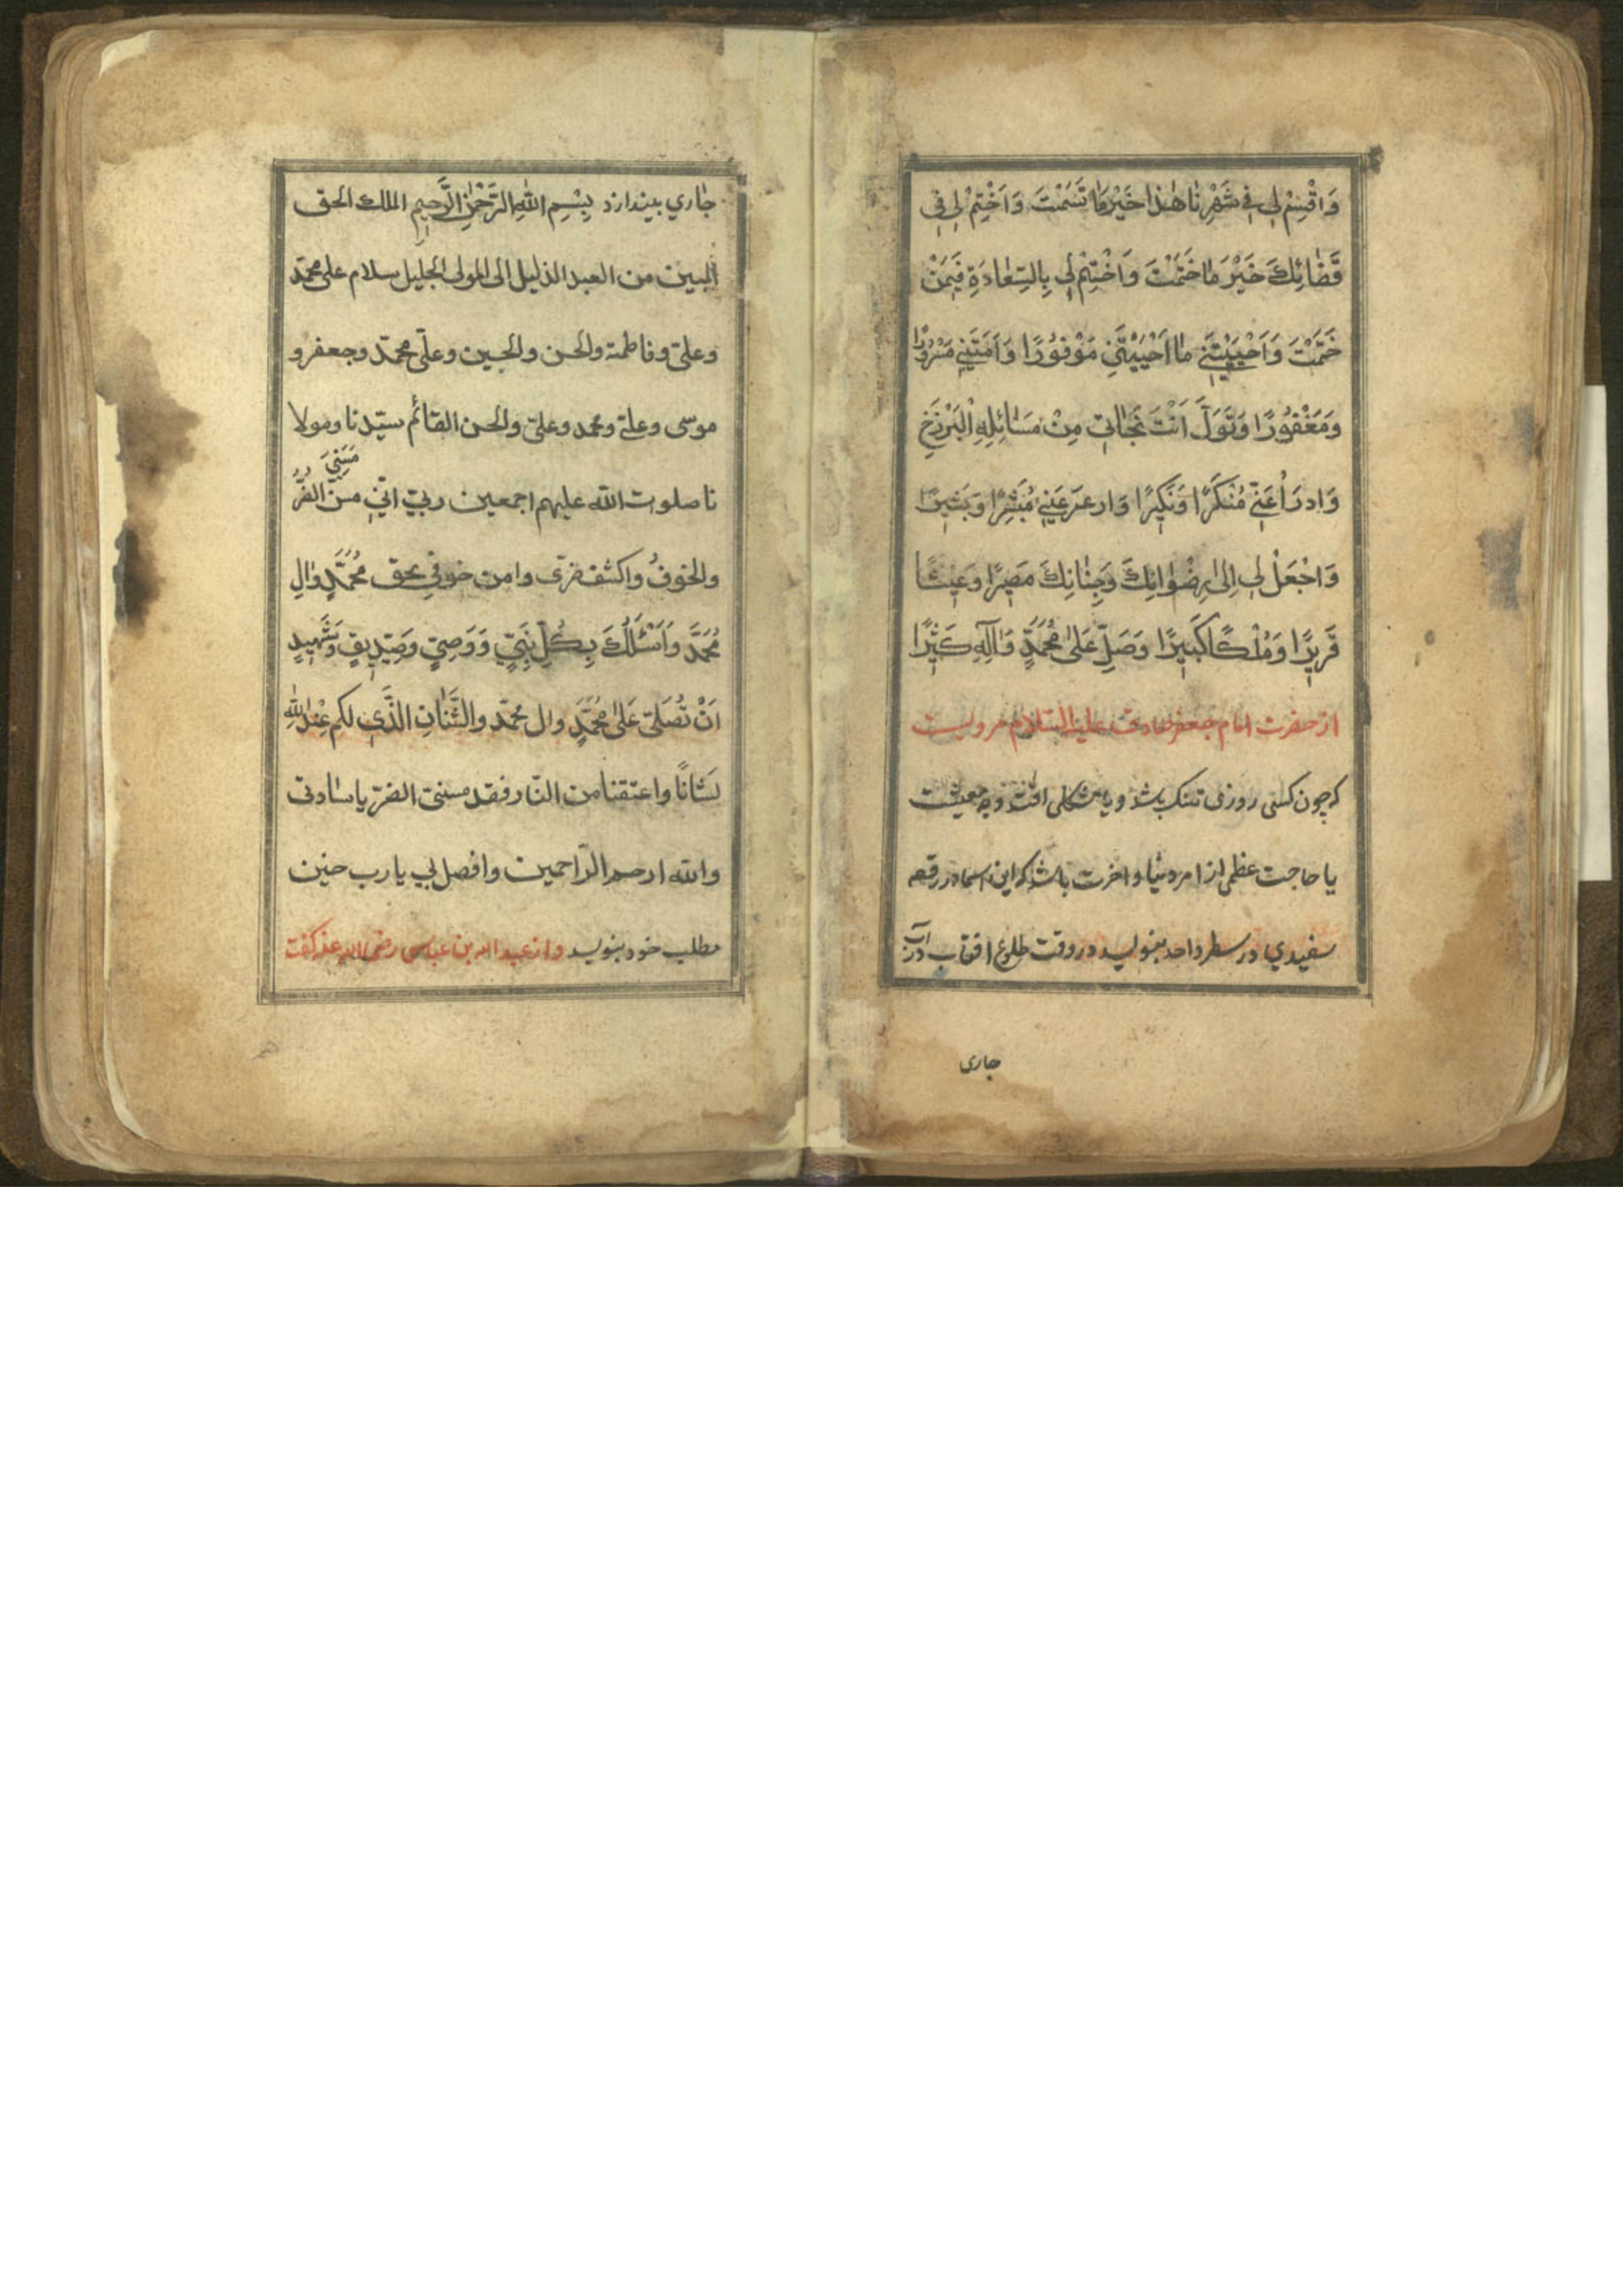 وَاَقْسِمْ لِي فِي شَهْرِنَا هٰذَا خَيْرَ مَا قَسَمْتَ وَاَخْتِمْ لِي فِي
قَضَائِكَ خَيْرَ مَا خَتَمْتَ وَاَخْتِمْ لِي بِالسَّعَادَةِ فِيمَنْ
خَتَمْتَ وَاَحْيِيْتَنِي مَا اَحْيَيْتَنِي مَوْفُورًا وَاَمِتْنِي مَسْرُورًا
وَمَغْفُورًا وَتَوَلَّ اَنْتَ نَجَاتِي مِنْ مَسَائِلِهِ الْبَرْزَخِ
وَادرَأْ عَنِّي مُنْكَرًا وَنَكِيرًا وَار عَيْنِي مُبَشِّرًا وَبَشِيرًا
وَاجْعَلْ لِي اِلىٰ رِضْوَانِكَ وَجِنَانِكَ مَصِيرًا وَعَيْشًا
قَرِيرًا وَمُلْكًا كَبِيرًا وَصَلِّ عَلىٰ مُحَمَّدٍ وَآلِهِ كَثِيرًا
از حضرت امام جعفر صادق علیه السّلام مرویست
که چون کسی روزی تنک باشد و یا مشکلی افتد وجه معیشت
یا حاجت عظمی از امر دنیا و اخرت باشد که این اسما در رقعه
سفیدي در سطر واحد بنویسد در وقت طلوع افتاب در آب
جاری
جٰاري بیندازد بِسْمِ اللهِ الرَّحْمٰنِ الرَّحِيمِ الملك الحق
المبين من العبد الذليل الى المولى الجليل سلام على محمّد
وعليّ وفاطمة والحسن والحسين وعليّ محمّد وجعفر و
موسى وعليّ ومحمد وعليّ والحسن القائم سيّدنا ومولا
نا صلوات الله عليهم اجمعين ربّ انّي مَسَّنِيَ مسّن الضُّرُّ
والخوفُ واكشف ضرّى وامن خوفي بحق مُحَمَّدٍ وَالِ
مُحَمَّد وَاَسْئَلُكَ بِكُلِّ نَبِيٍّ وَوَصِيٍّ وَصِدِّيقٍ وَشَهِيدٍ
اَنْ تُصَلِّي عَلىٰ مُحَمَّدٍ وال محمّد والشَّٰانِ الَّذي لكم عِنْدَ اللهِ
لشٰانًا واعتقنا من النّار فقد مسّنى الضرّ یا سٰادتى
والله ارحم الرّاحمين وافصل لي يا رب حنين
مطلب خود بنويسد واز عبد الله بن عباس رضى الله عنه كفت